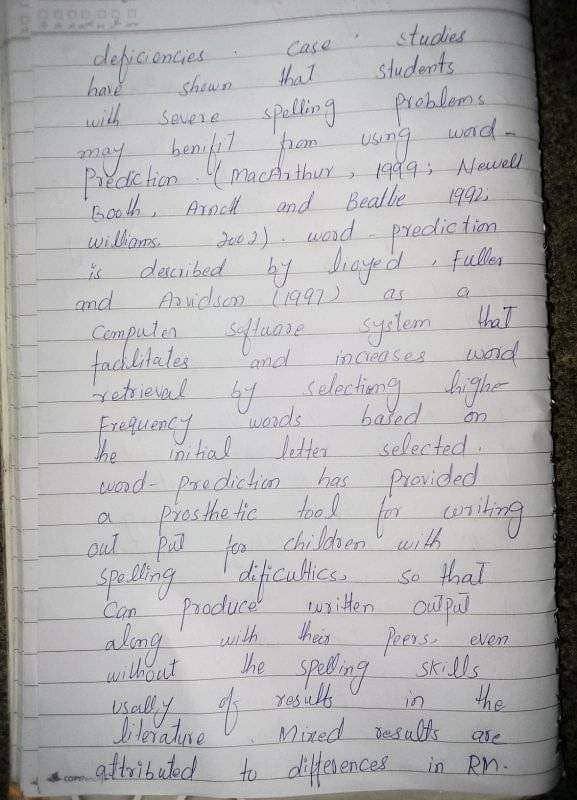 deficiencies . case . studies
have shown that students
with severe spelling problems
may benifit from using word-
Prediction . (MacArthur , 1999; Newell
Booth, Arnott and Beattie 1992,
williams. 2002) . word - prediction
is described by lioyed , Fuller
and Arvidson (1997) as a
Computer software system that
facilitates and increases word
retrieval by selectiong highe-
Frequency words based on
he initial letter selected.
word- prediction has provided
a Prosthetic tool for writing
out put for children with
spelling dificultics, so that
Can Produce written output
along with their Peers, even
without the spelling skills
usally of results in the
literature . Mixed results are
attributed to differences in RM.